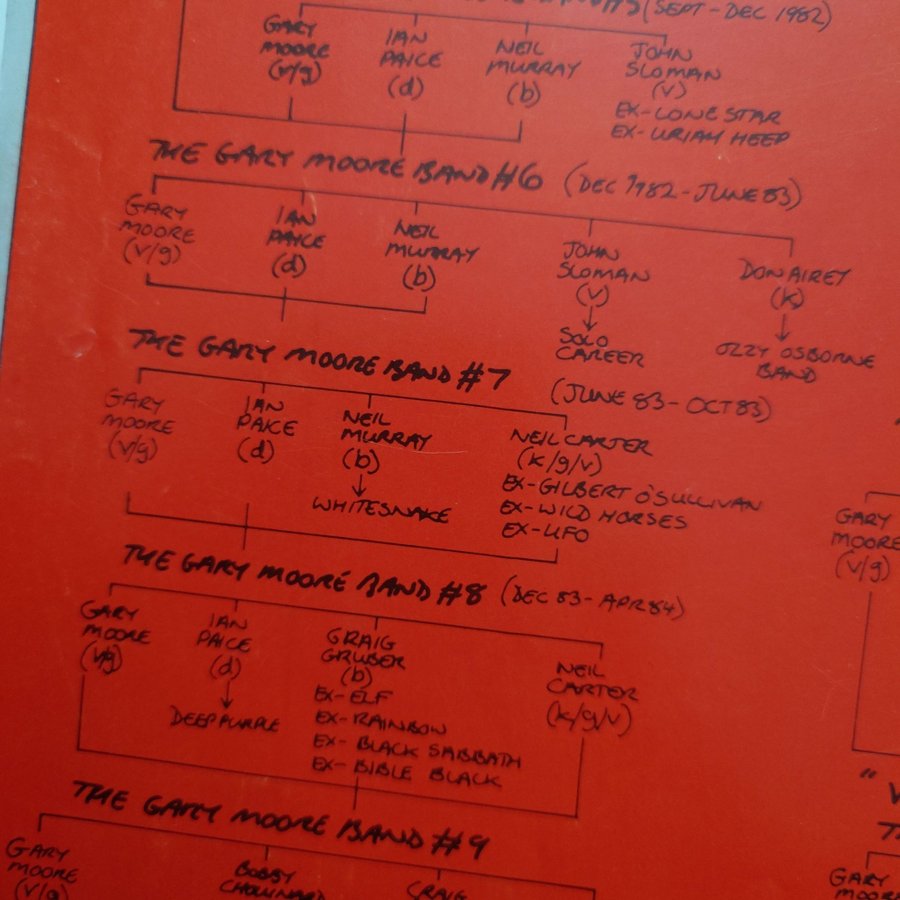 (SEPT-DEC 1982)
GARY
MOORE
(v/g)
IAN
PAICE
(d)
NEIL
MURRAY
(b)
JOHN
SLOMAN
(v)
EX-LONE STAR
EX-URIAH HEEP
THE GARY MOORE BAND #6 (DEC 1982-JUNE 83)
GARY
MOORE
(v/g)
IAN
PAICE
(d)
NEIL
MURRAY
(b)
JOHN
SLOMAN
(v)
SOLO
CAREER
DON AIREY
(k)
OZZY OSBORNE
BAND
THE GARY MOORE BAND #7
(JUNE 83-OCT 83)
GARY
MOORE
(v/g)
IAN
PAICE
(d)
NEIL
MURRAY
(b)
WHITESNAKE
NEIL CARTER
(k/g/v)
EX-GILBERT O'SULLIVAN
EX-WILD HORSES
EX-UFO
THE GARY MOORE BAND #8 (DEC 83-APR 84)
GARY
MOORE
(v/g)
IAN
PAICE
(d)
DEEP PURPLE
GRAIG
GRUBER
(b)
EX-ELF
EX-RAINBOW
EX-BLACK SABBATH
EX-BIBLE BLACK
NEIL
CARTER
(k/g/v)
THE GARY MOORE BAND #9
GARY
MOORE
(v/g)
BOBBY
CHOUINARD
CRAIG
GARY
MOORE
(v/g)
GARY
MOORE